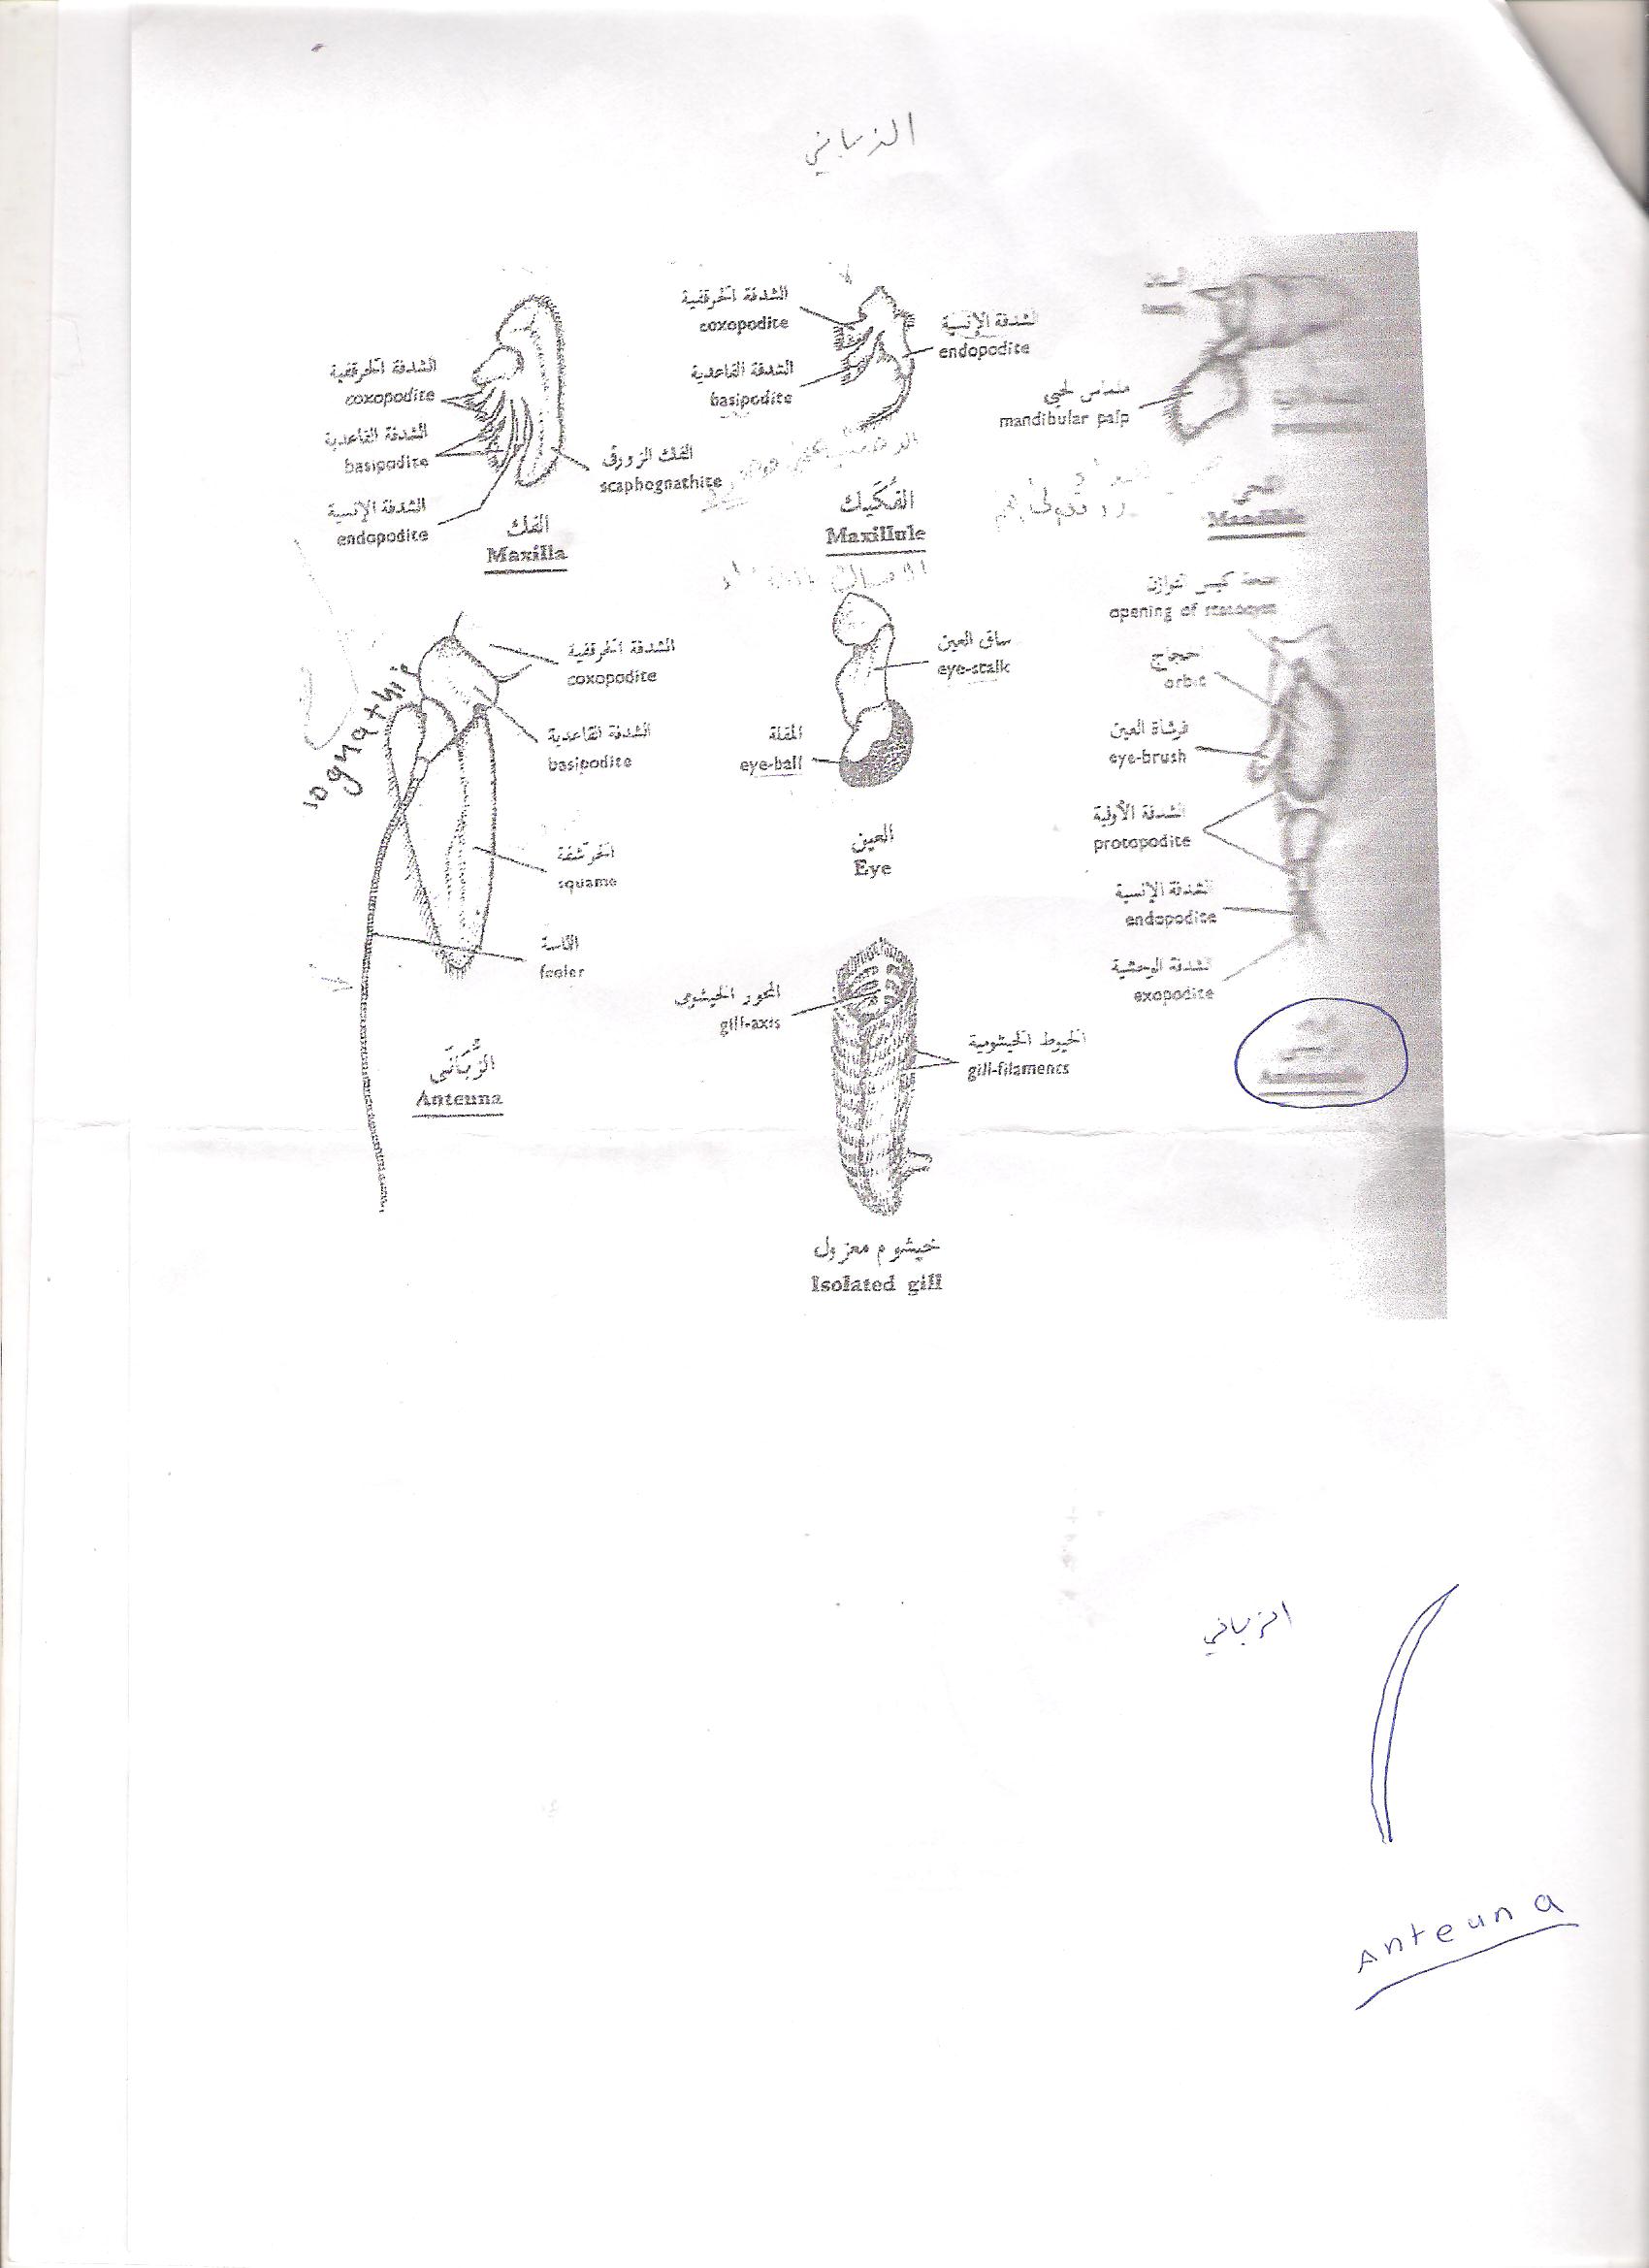 الزباني
الشدفة الحرقفية
coxopodite
الشدفة القاعدية
basipodite
الشدفة الإنسية
endopodite
الفك الزورقى
scaphognathite
الفك
Maxilla
الشدفة الحرقفية
coxopodite
الشدفة القاعدية
basipodite
الشدفة الإنسية
endopodite
الفُكَيك
Maxillule
ملماس لحيي
mandibular palp
اللحي
Mandible
ognathi
الشدفة الحرقفية
coxopodite
الشدفة القاعدية
basipodite
الحرشفة
squame
اللامسة
feeler
الزُّبَانَى
Anteuna
ساق العين
eye-stalk
المقلة
eye-ball
العين
Eye
فتحة كيس التوازن
opening of statocyst
حجاج
orbit
فرشاة العين
eye-brush
الشدفة الأولية
protopodite
الشدفة الإنسية
endopodite
الشدفة الوحشية
exopodite
المحور الخيشومى
gill-axis
الخيوط الخيشومية
gill-filaments
خيشوم معزول
Isolated gill
الزباني
Anteuna